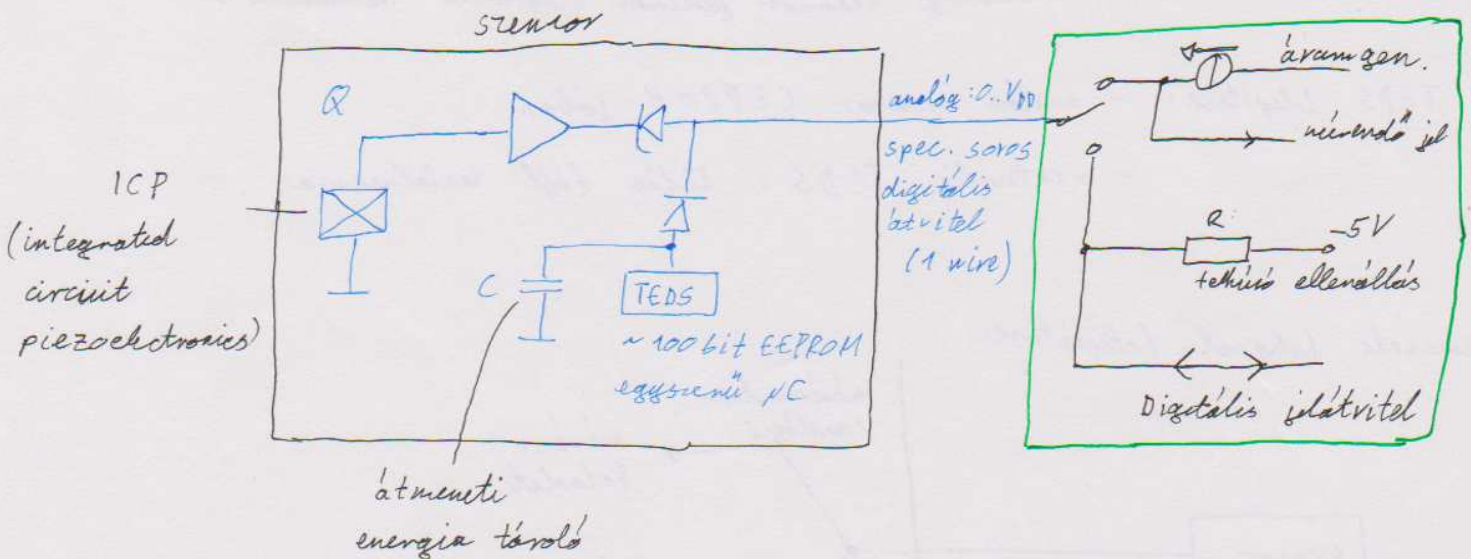 szenzor
Q
ICP
(integrated
circuit
piezoelectronics)
C
TEDS
~ 100 bit EEPROM
egyszerű μC
átmeneti
energia tároló
analóg: 0..VDD
spec. soros
digitális
átvitel
(1 wire)
áramgen.
mérendő jel
R
-5V
felhúzó ellenállás
Digitális jelátvitel